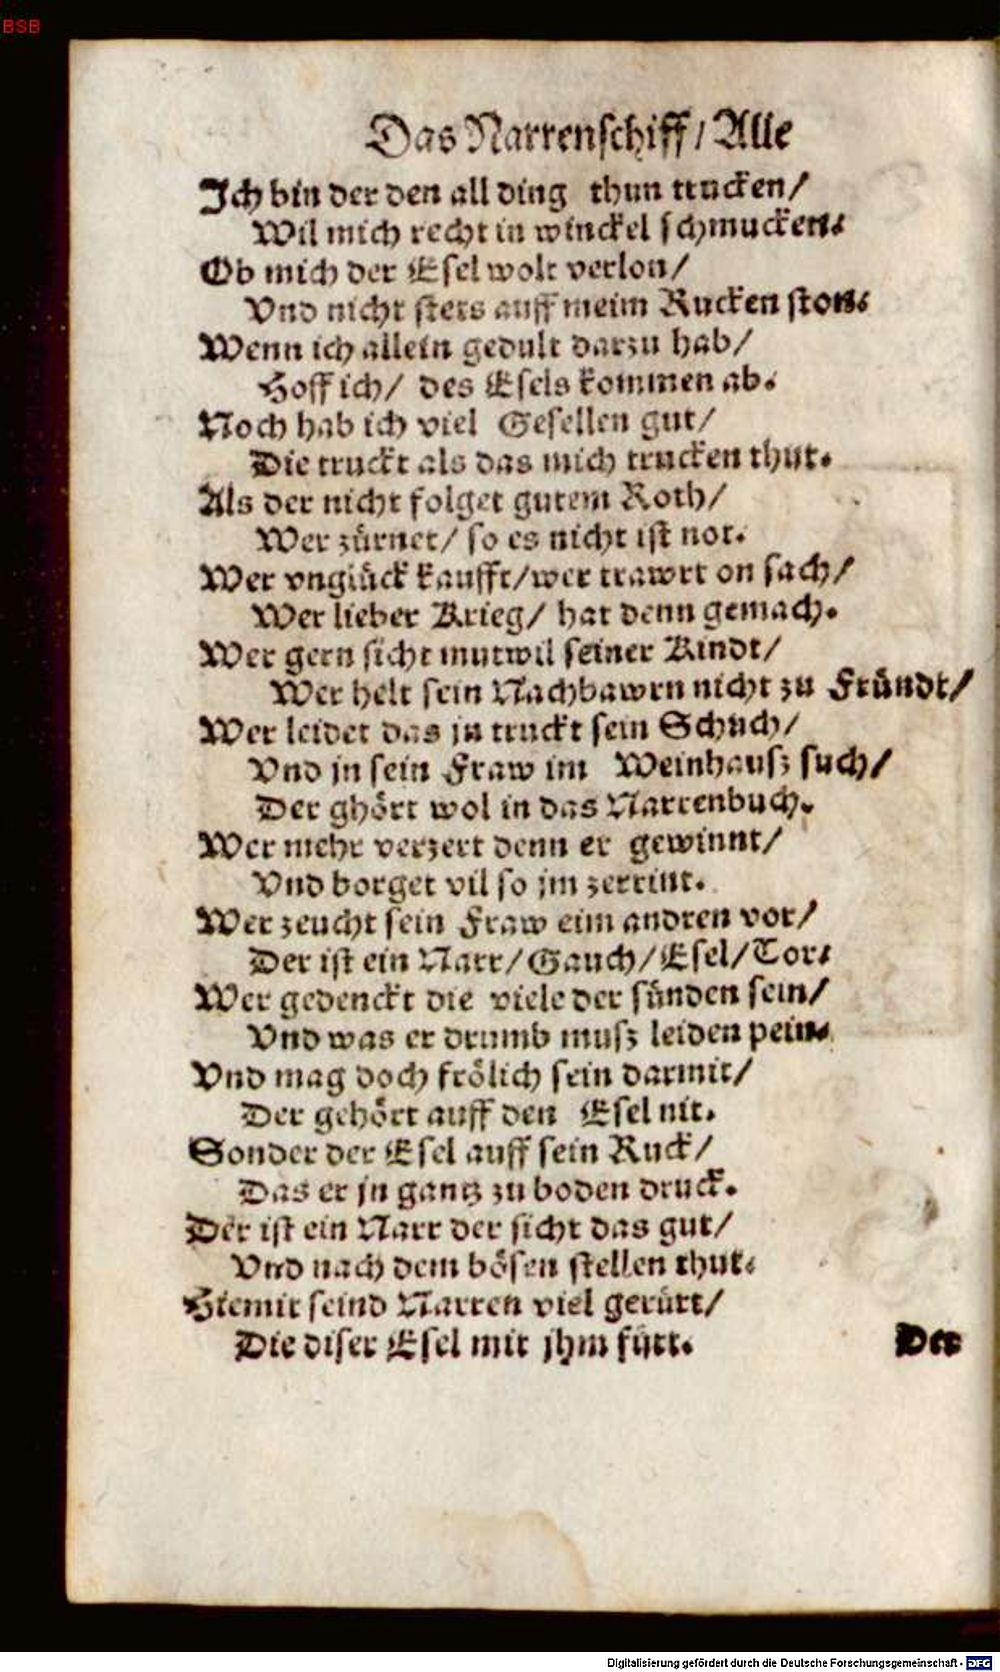 BSB
Das Narrenschiff / Alle
Ich bin der den all ding thun trucken /
Wil mich recht in winckel schmucken.
Ob mich der Esel wolt verlon /
Vnd nicht stets auff meim Rucken ston.
Wenn ich allein gedult darzu hab /
Hoff ich / des Esels kommen ab.
Noch hab ich viel Gesellen gut /
Die truckt als das mich trucken thut.
Als der nicht folget gutem Roth /
Wer zürnet / so es nicht ist not.
Wer vnglück kaufft / wer trawrt on sach /
Wer lieber Krieg / hat denn gemach.
Wer gern sicht mutwil seiner Kindt /
Wer helt sein Nachbawrn nicht zu Fründt /
Wer leidet das jn truckt sein Schuch /
Vnd jn sein Fraw im Weinhausz such /
Der ghört wol in das Narrenbuch.
Wer mehr verzert denn er gewinnt /
Vnd borget vil so jm zerrint.
Wer zeucht sein Fraw eim andren vor /
Der ist ein Narr / Gauch / Esel / Tor.
Wer gedenckt die viele der sünden sein /
Vnd was er drumb musz leiden pein.
Vnd mag doch frölich sein darmit /
Der gehört auff den Esel nit.
Sonder der Esel auff sein Ruck /
Das er jn gantz zu boden druck.
Der ist ein Narr der sicht das gut /
Vnd nach dem bösen stellen thut.
Hiemit seind Narren viel gerürt /
Die diser Esel mit jhm fürt.
Der
Digitalisierung gefördert durch die Deutsche Forschungsgemeinschaft - DFG